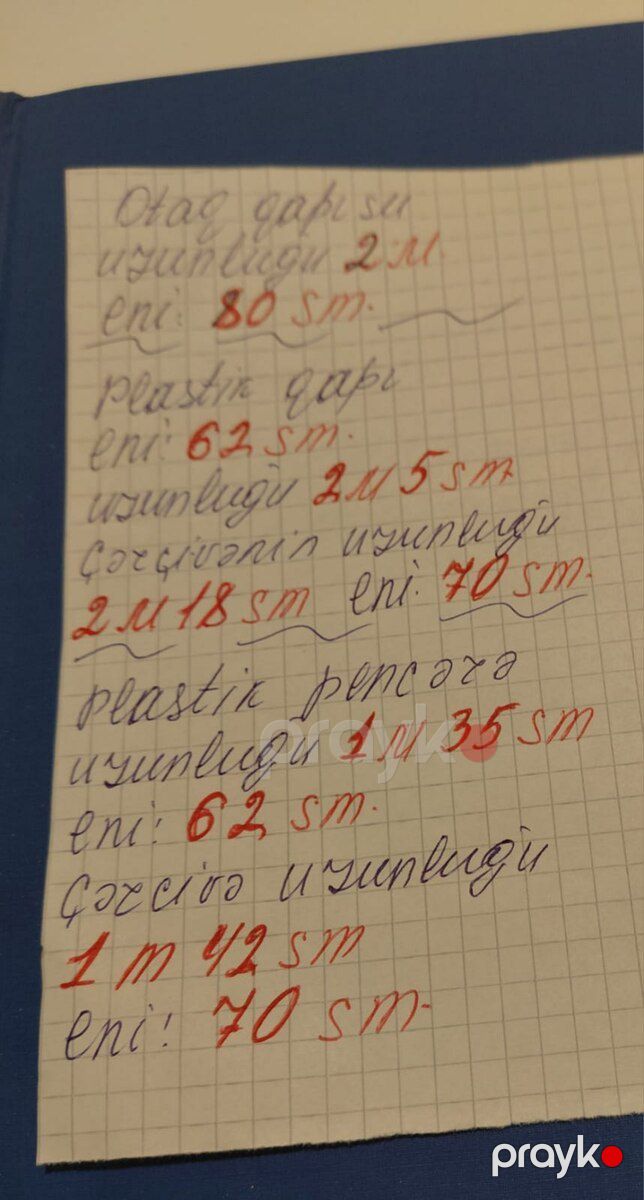 Otaq qapısı
uzunluğu 2 м.
eni: 80 sm.
plastik qapı
eni: 62 sm.
uzunluğu 2 м 5 sm
Çərçivənin uzunluğu
2 м 18 sm eni: 70 sm.
plastik pencərə
uzunluğu 1 м 35 sm
eni: 62 sm.
Çərcivə uzunluğu
1 m 42 sm
eni: 70 sm.
prayko
prayko